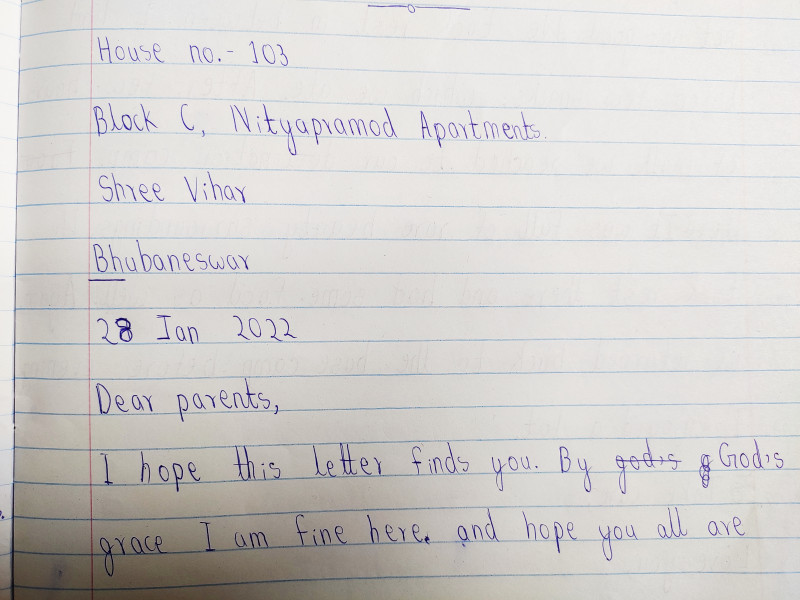 House no.- 103
Block C, Nityapramod Apartments.
Shree Vihar
Bhubaneswar
28 Jan 2022
Dear parents,
I hope this letter finds you. By god's God's
grace I am fine here. and hope you all are